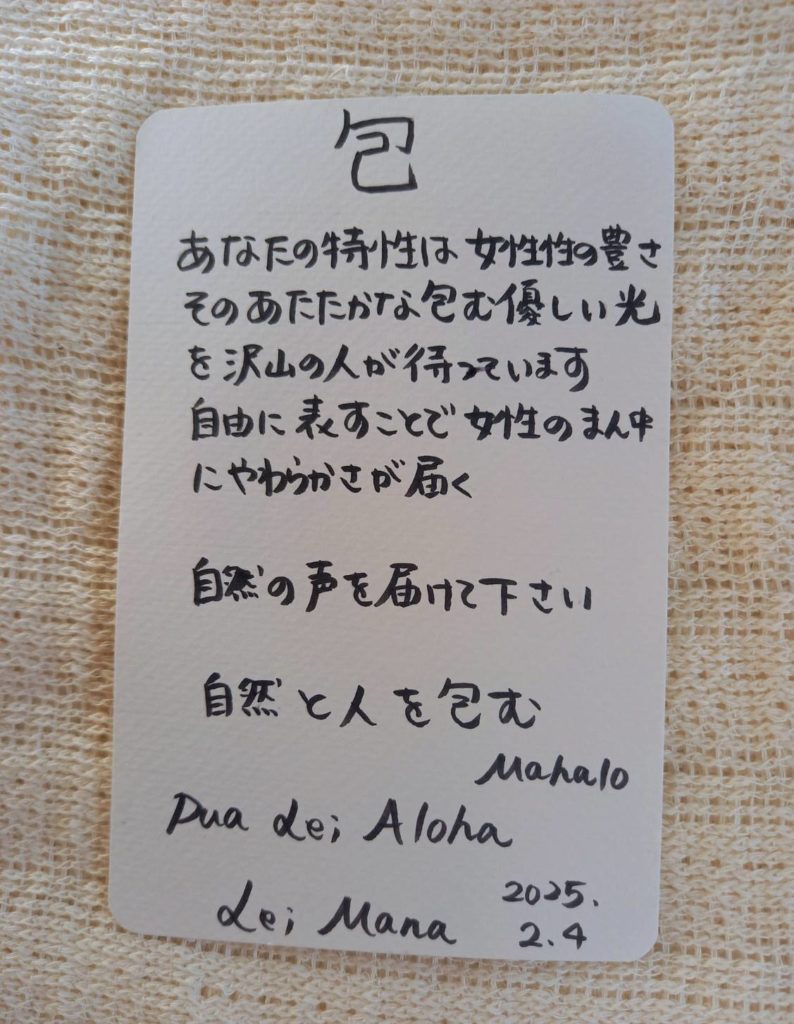 包
あなたの特性は女性性の豊さ
そのあたたかな包む優しい光
を沢山の人が待っています
自由に表すことで女性のまん中
にやわらかさが届く
自然の声を届けて下さい
自然と人を包む
Mahalo
Pua Lei Aloha
Lei Mana
2025.
2.4